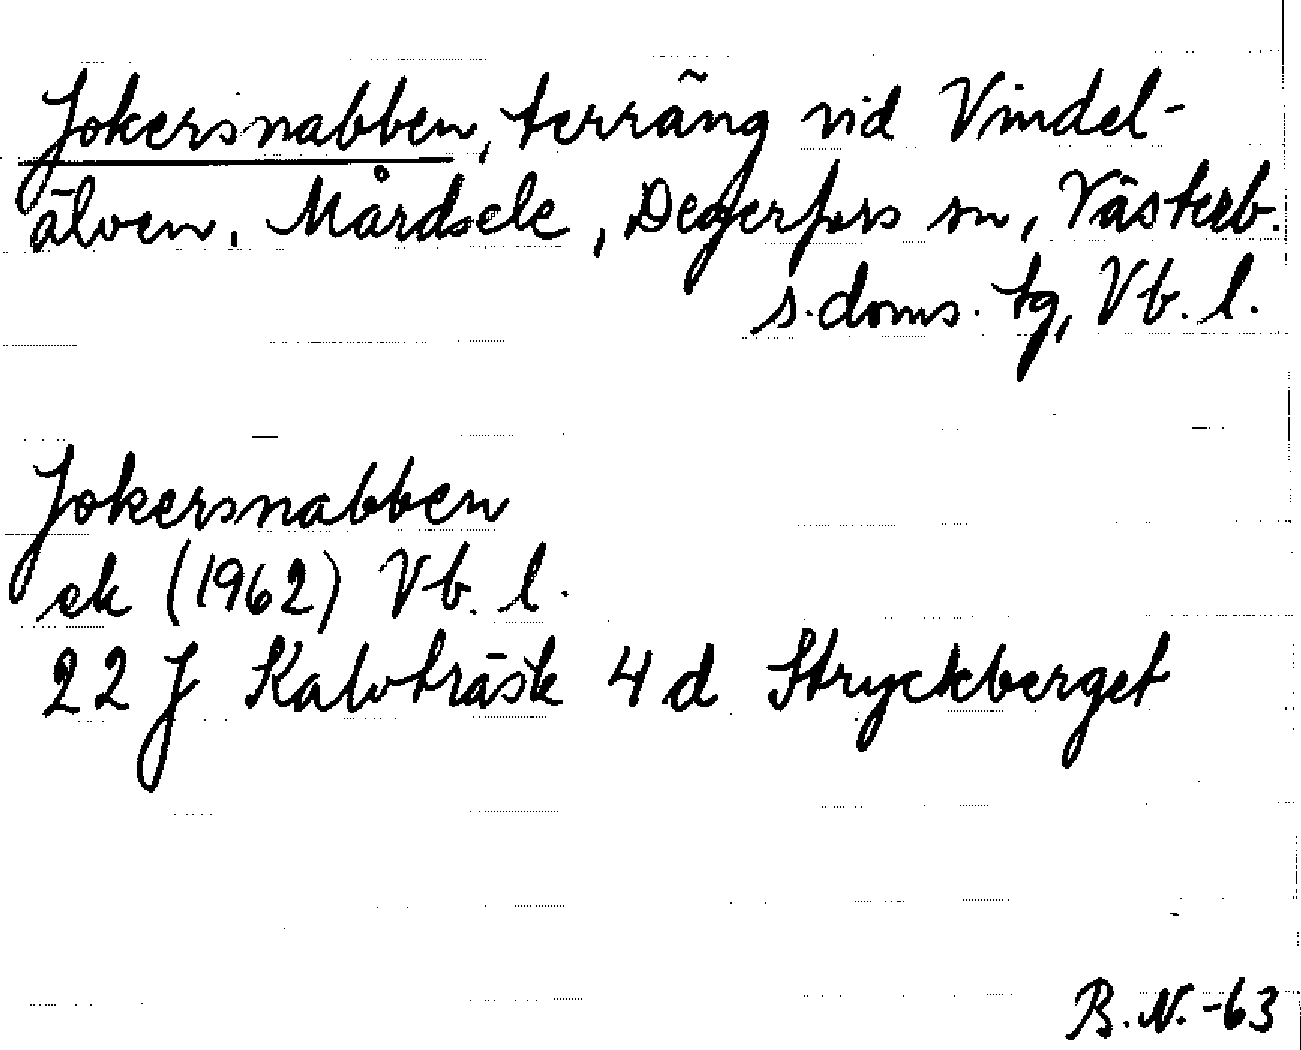 Jokersnabben, terräng vid Vindel-
älven, Mårdsele, Degerfors sn, Västerb.
s. doms. tg, Vb. l.
Jokersnabben
ek (1962) Vb. l.
22 J Kalvträsk 4 d Stryckberget
B.N. -63